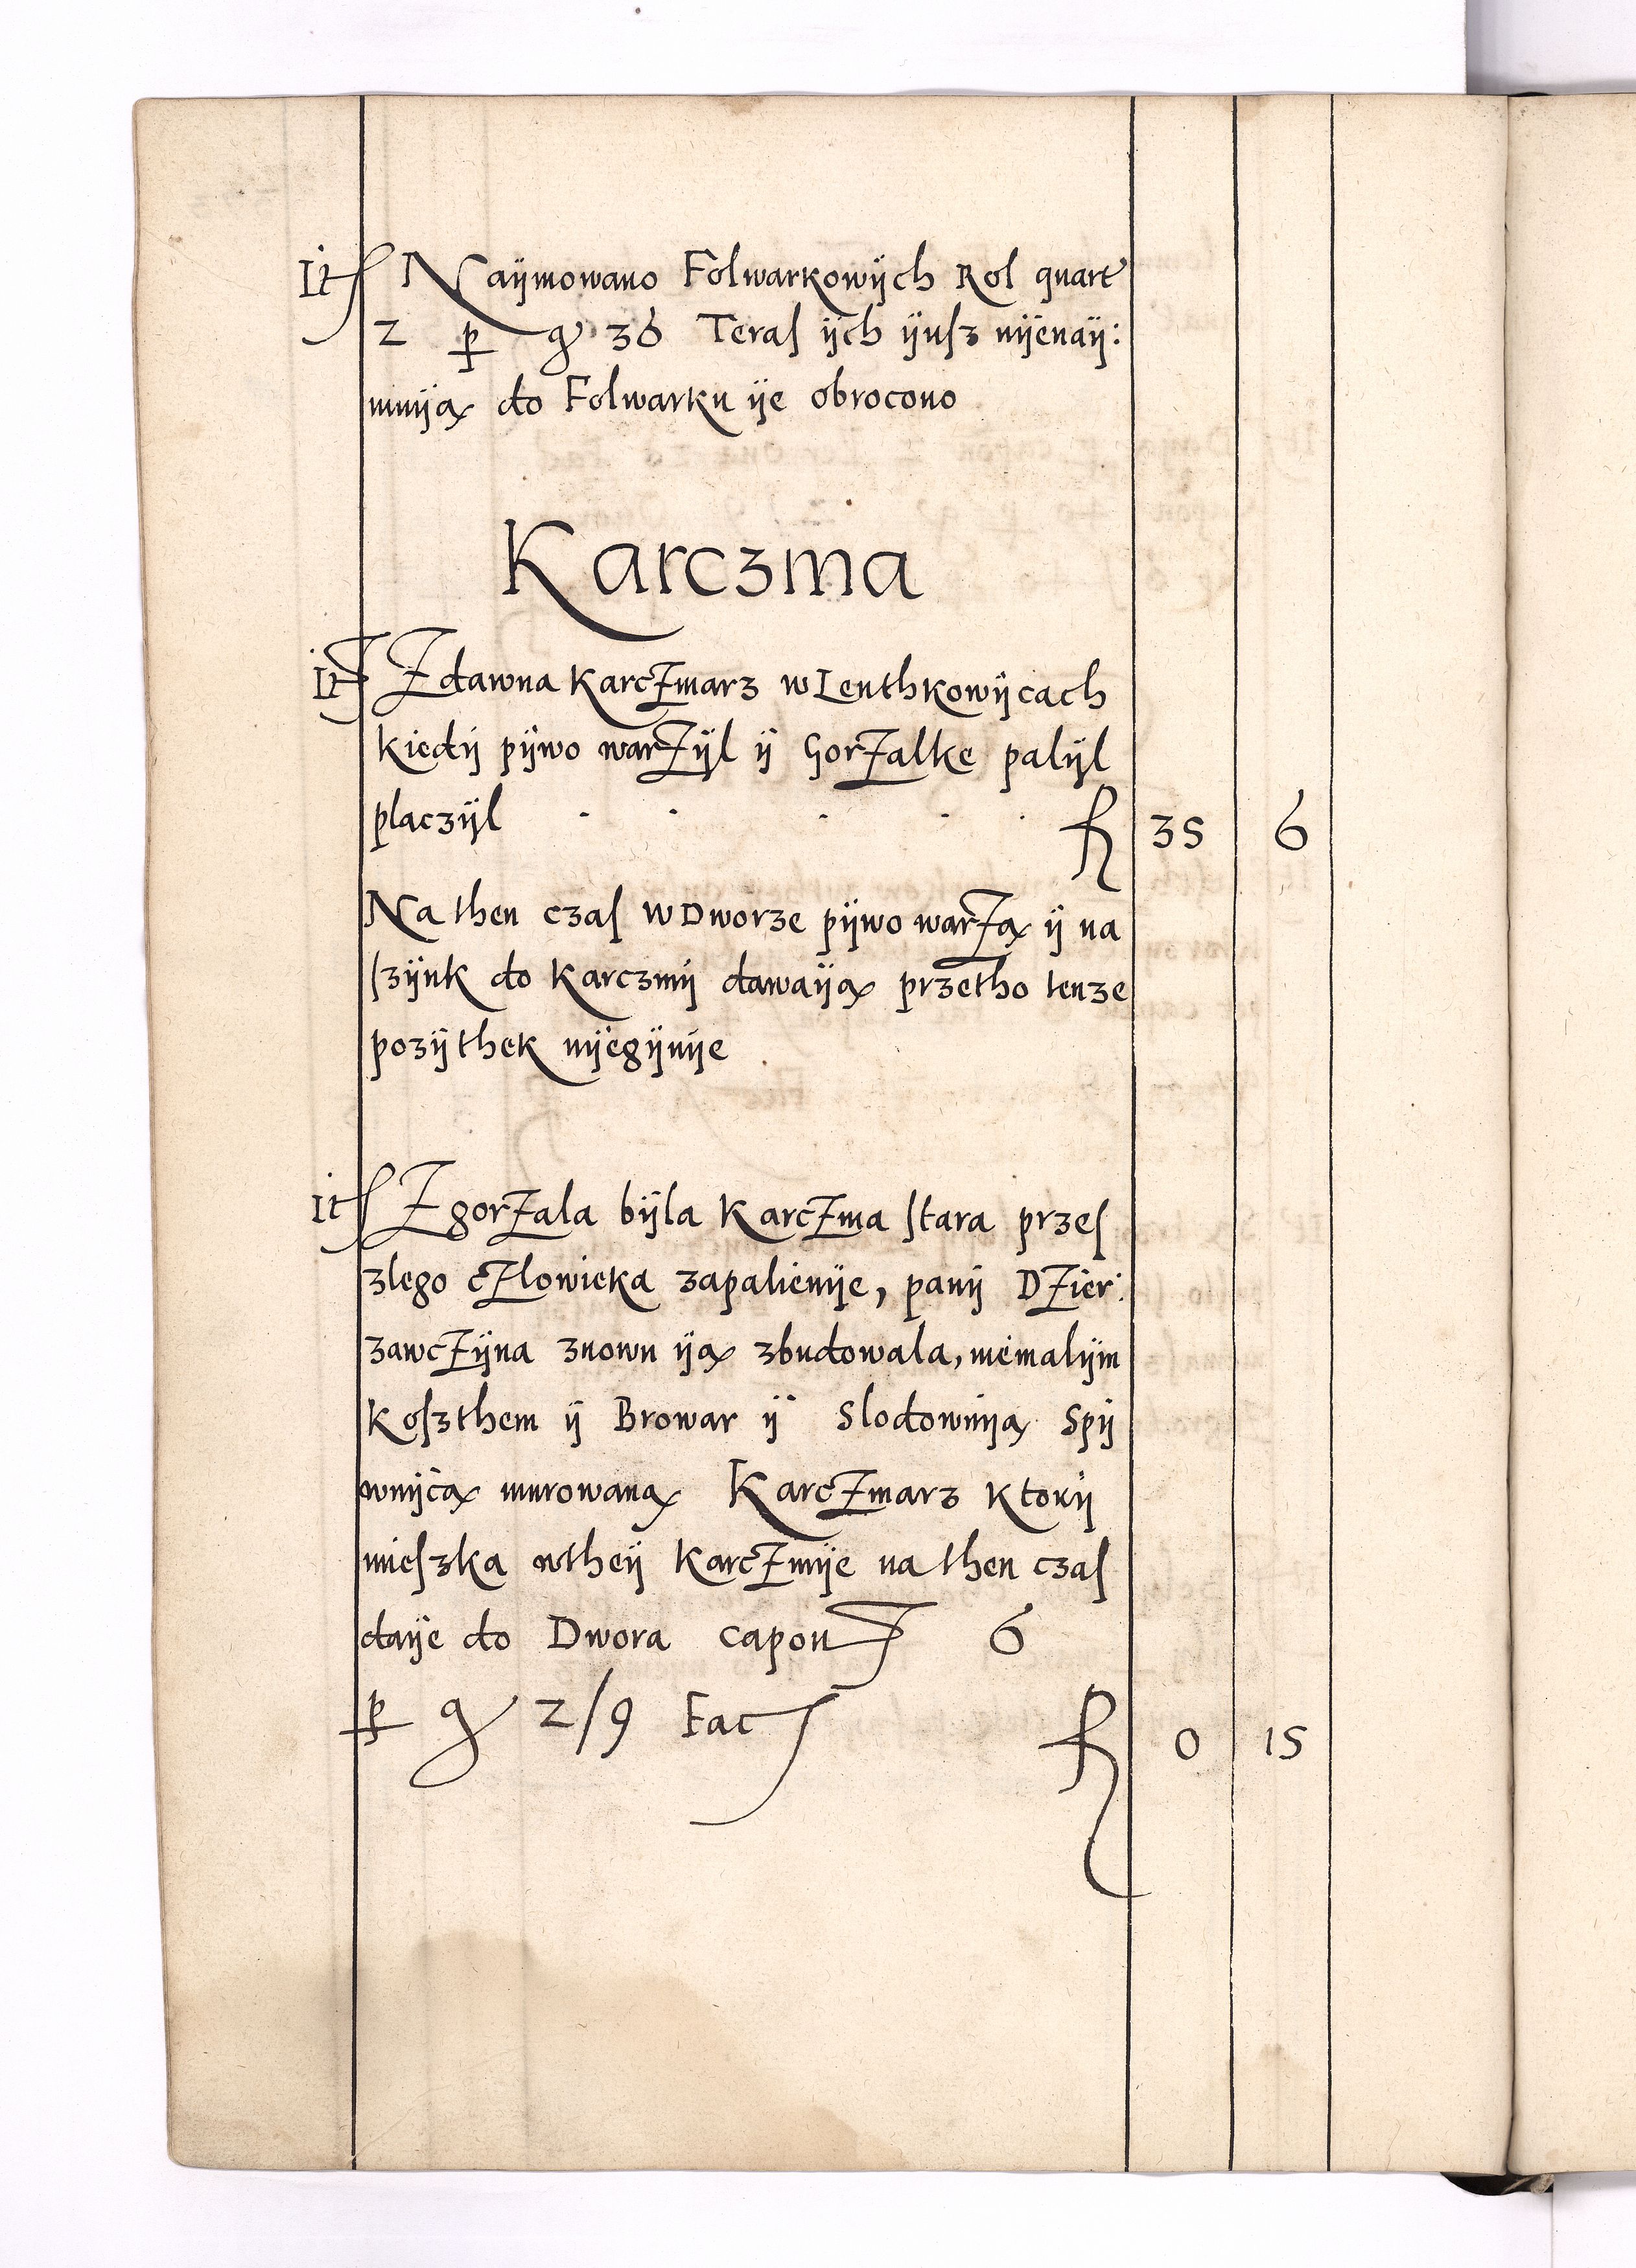 It Naÿmowano Folwarkowÿch Rol quart
2 p g 36 Teras ÿch ÿusz nÿenaÿ:
mnÿą do Folwarku ÿe obrocono
Karczma
It Zdawna Karczmarz w Lenthkowÿcach
kiedÿ pÿwo warzÿl ÿ Gorzalke palÿl
placzÿl . . . . . fl 35 6
Na then czas w Dworze pÿwo warzą ÿ na
szÿnk do Karczmÿ dawaÿą przetho tenze
pozÿthek nÿegÿnÿe
It Zgorzala bÿla Karczma stara przes
zlego czlowieka zapalienÿe, panÿ Dzier:
zawczÿna znowu ÿą zbudowala, niemalÿm
Koszthem ÿ Browar ÿ Slodownÿą Spÿ
wnÿcą murowaną Karczmarz Ktorÿ
mieszka wtheÿ Karczmÿe na then czas
daÿe do Dwora capon 6
p g 2/9 Fac fl 0 15